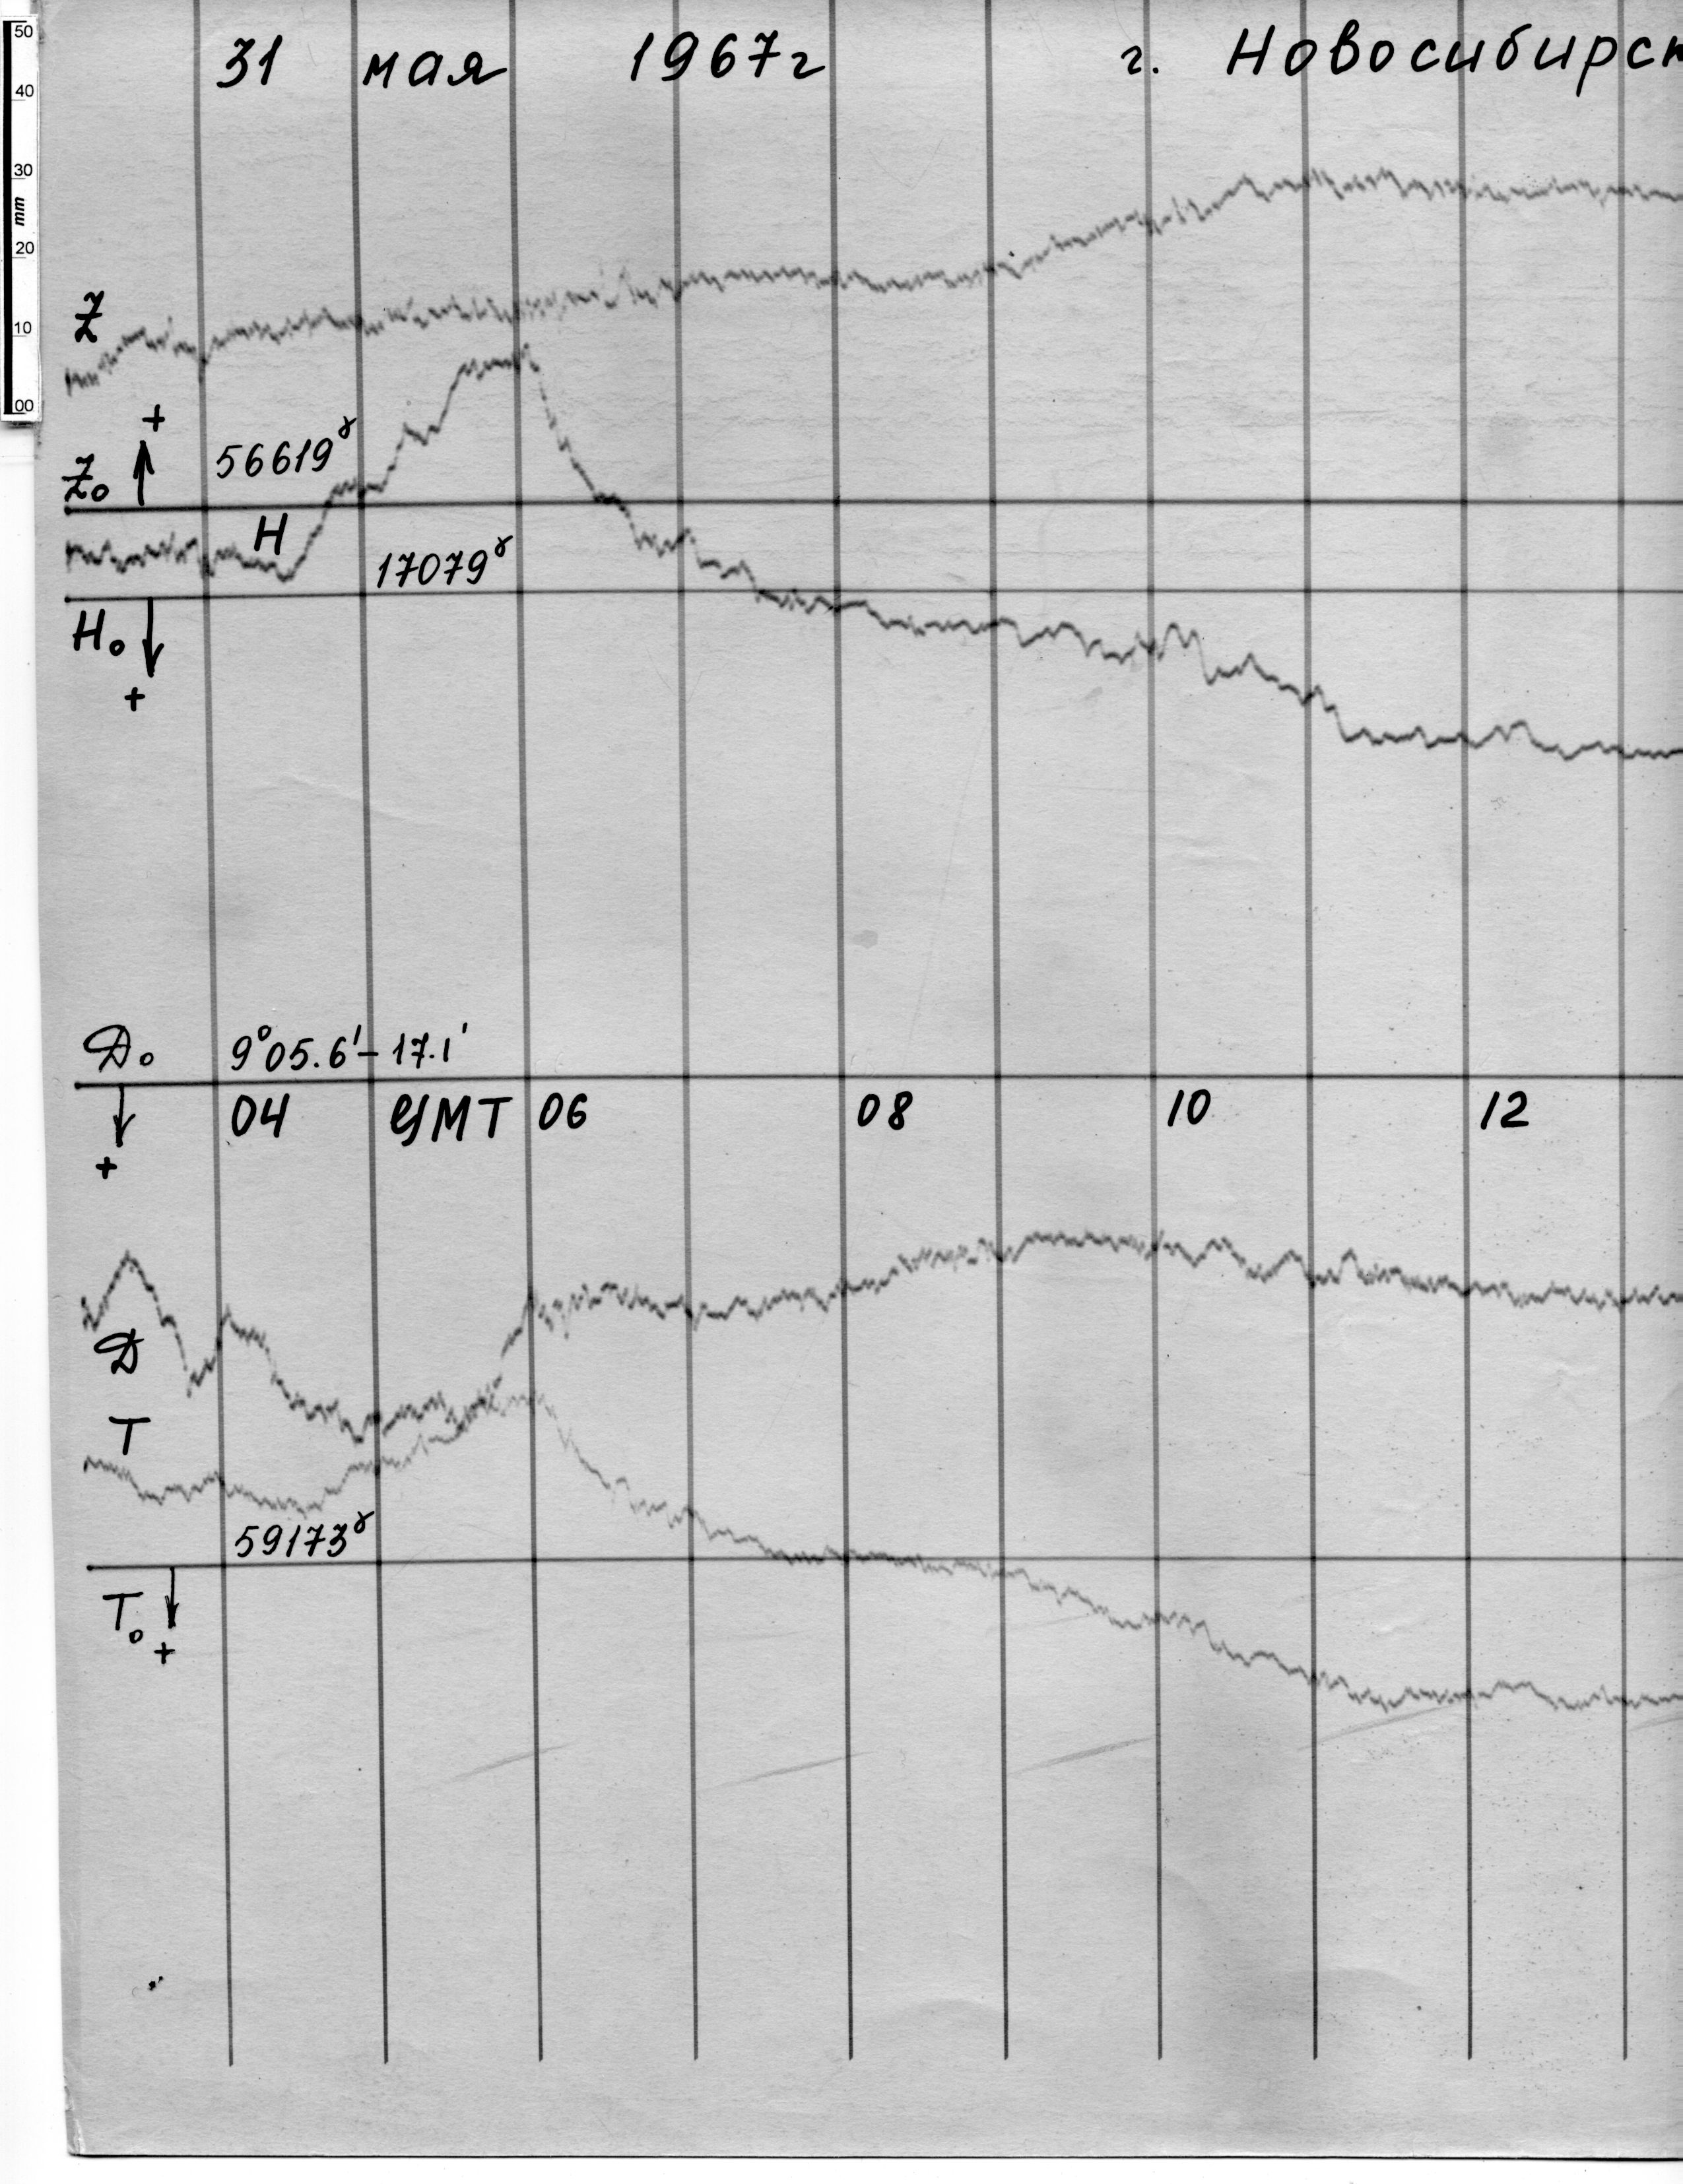 50
40
30
mm
20
10
00
31 мая 1967г г. Новосибирск
Z
+
Z₀ 56619ᵞ
H
17079ᵞ
H₀
+
D₀ 9°05.6' – 17.1'
04 UMT 06 08 10 12
+
D
T
59173ᵞ
T₀
+